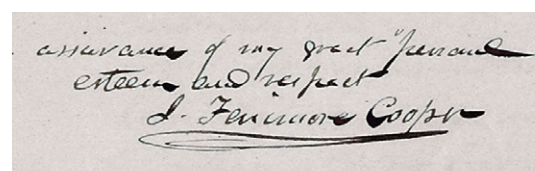 assurance of my great personal
esteem and respect
J. Fenimore Cooper